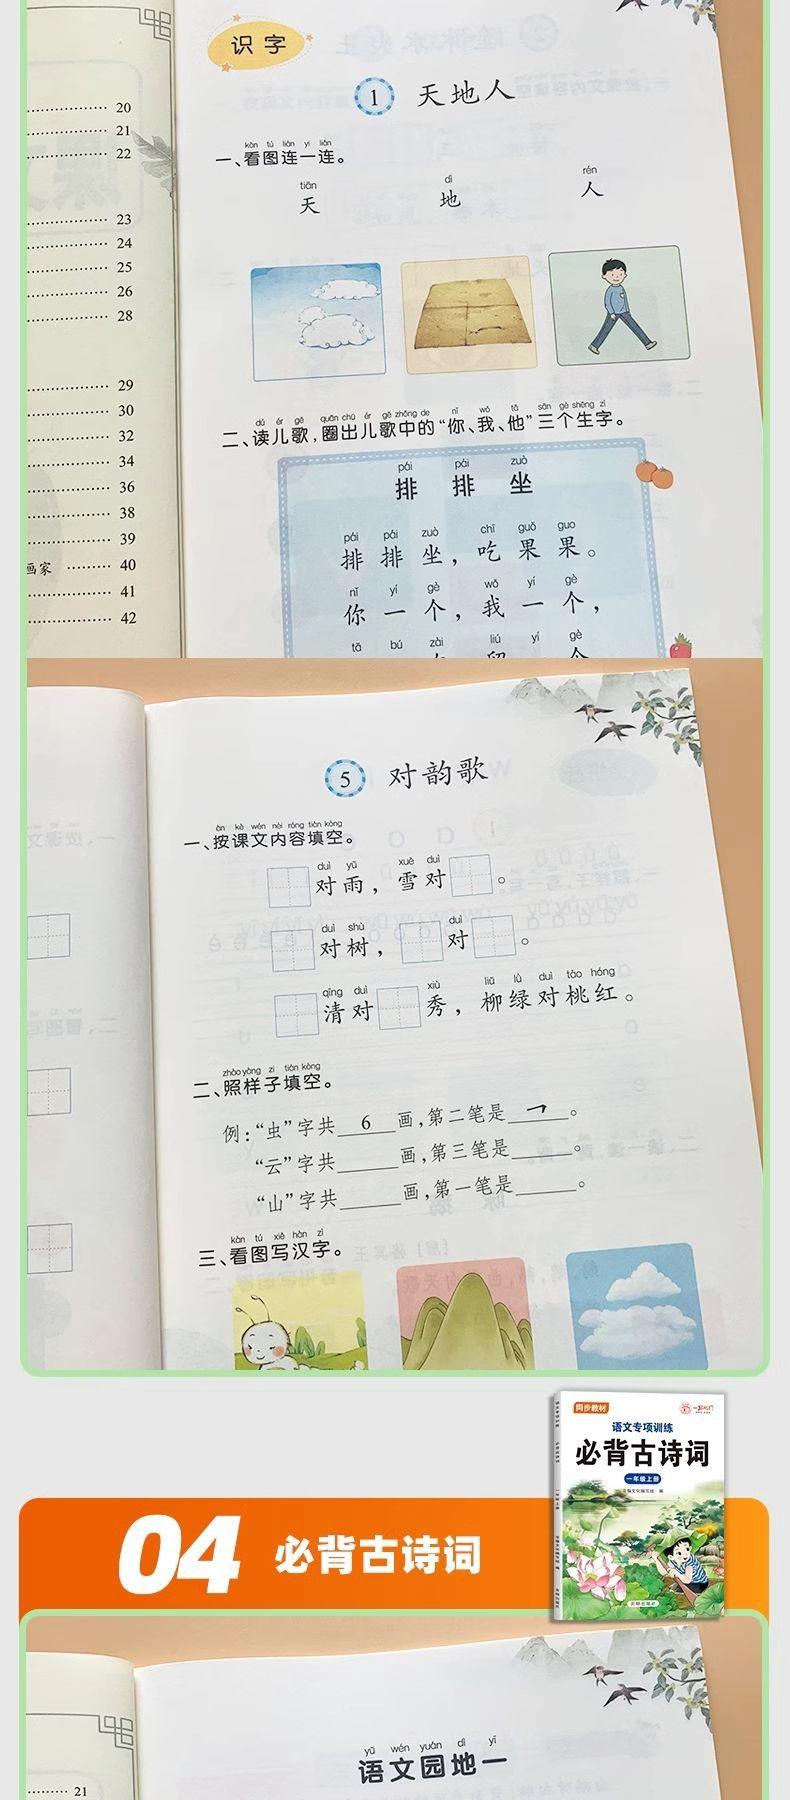 识字
20
21
22
23
24
25
26
28
29
30
32
34
36
38
39
画家 40
41
42
1 天地人
kàn tú lián yi lián
一、看图连一连。
tiān dì rén
天 地 人
dú ér gē quān chū ér gē zhōng de nǐ wǒ tā sān gè shēng zì
二、读儿歌,圈出儿歌中的“你、我、他”三个生字。
pái pái zuò
排 排 坐
pái pái zuò chī guǒ guo
排 排 坐,吃 果 果。
nǐ yí gè wǒ yí gè
你 一 个,我 一 个,
tā bú zài liú yí gè
5 对韵歌
àn kè wén nèi róng tián kòng
一、按课文内容填空。
duì yǔ xuě duì
对雨,雪对 。
duì shù duì
对树, 对 。
qīng duì xiù liǔ lǜ duì táo hóng
清对 秀,柳绿对桃红。
zhào yàng zi tián kòng
二、照样子填空。
例:“虫”字共 6 画,第二笔是 ㇕ 。
“云”字共 画,第三笔是 。
“山”字共 画,第一笔是 。
kàn tú xiě hàn zì
三、看图写汉字。
同步教材
语文专项训练
必背古诗词
一年级上册
04 必背古诗词
yǔ wén yuán dì yī
语文园地一
21